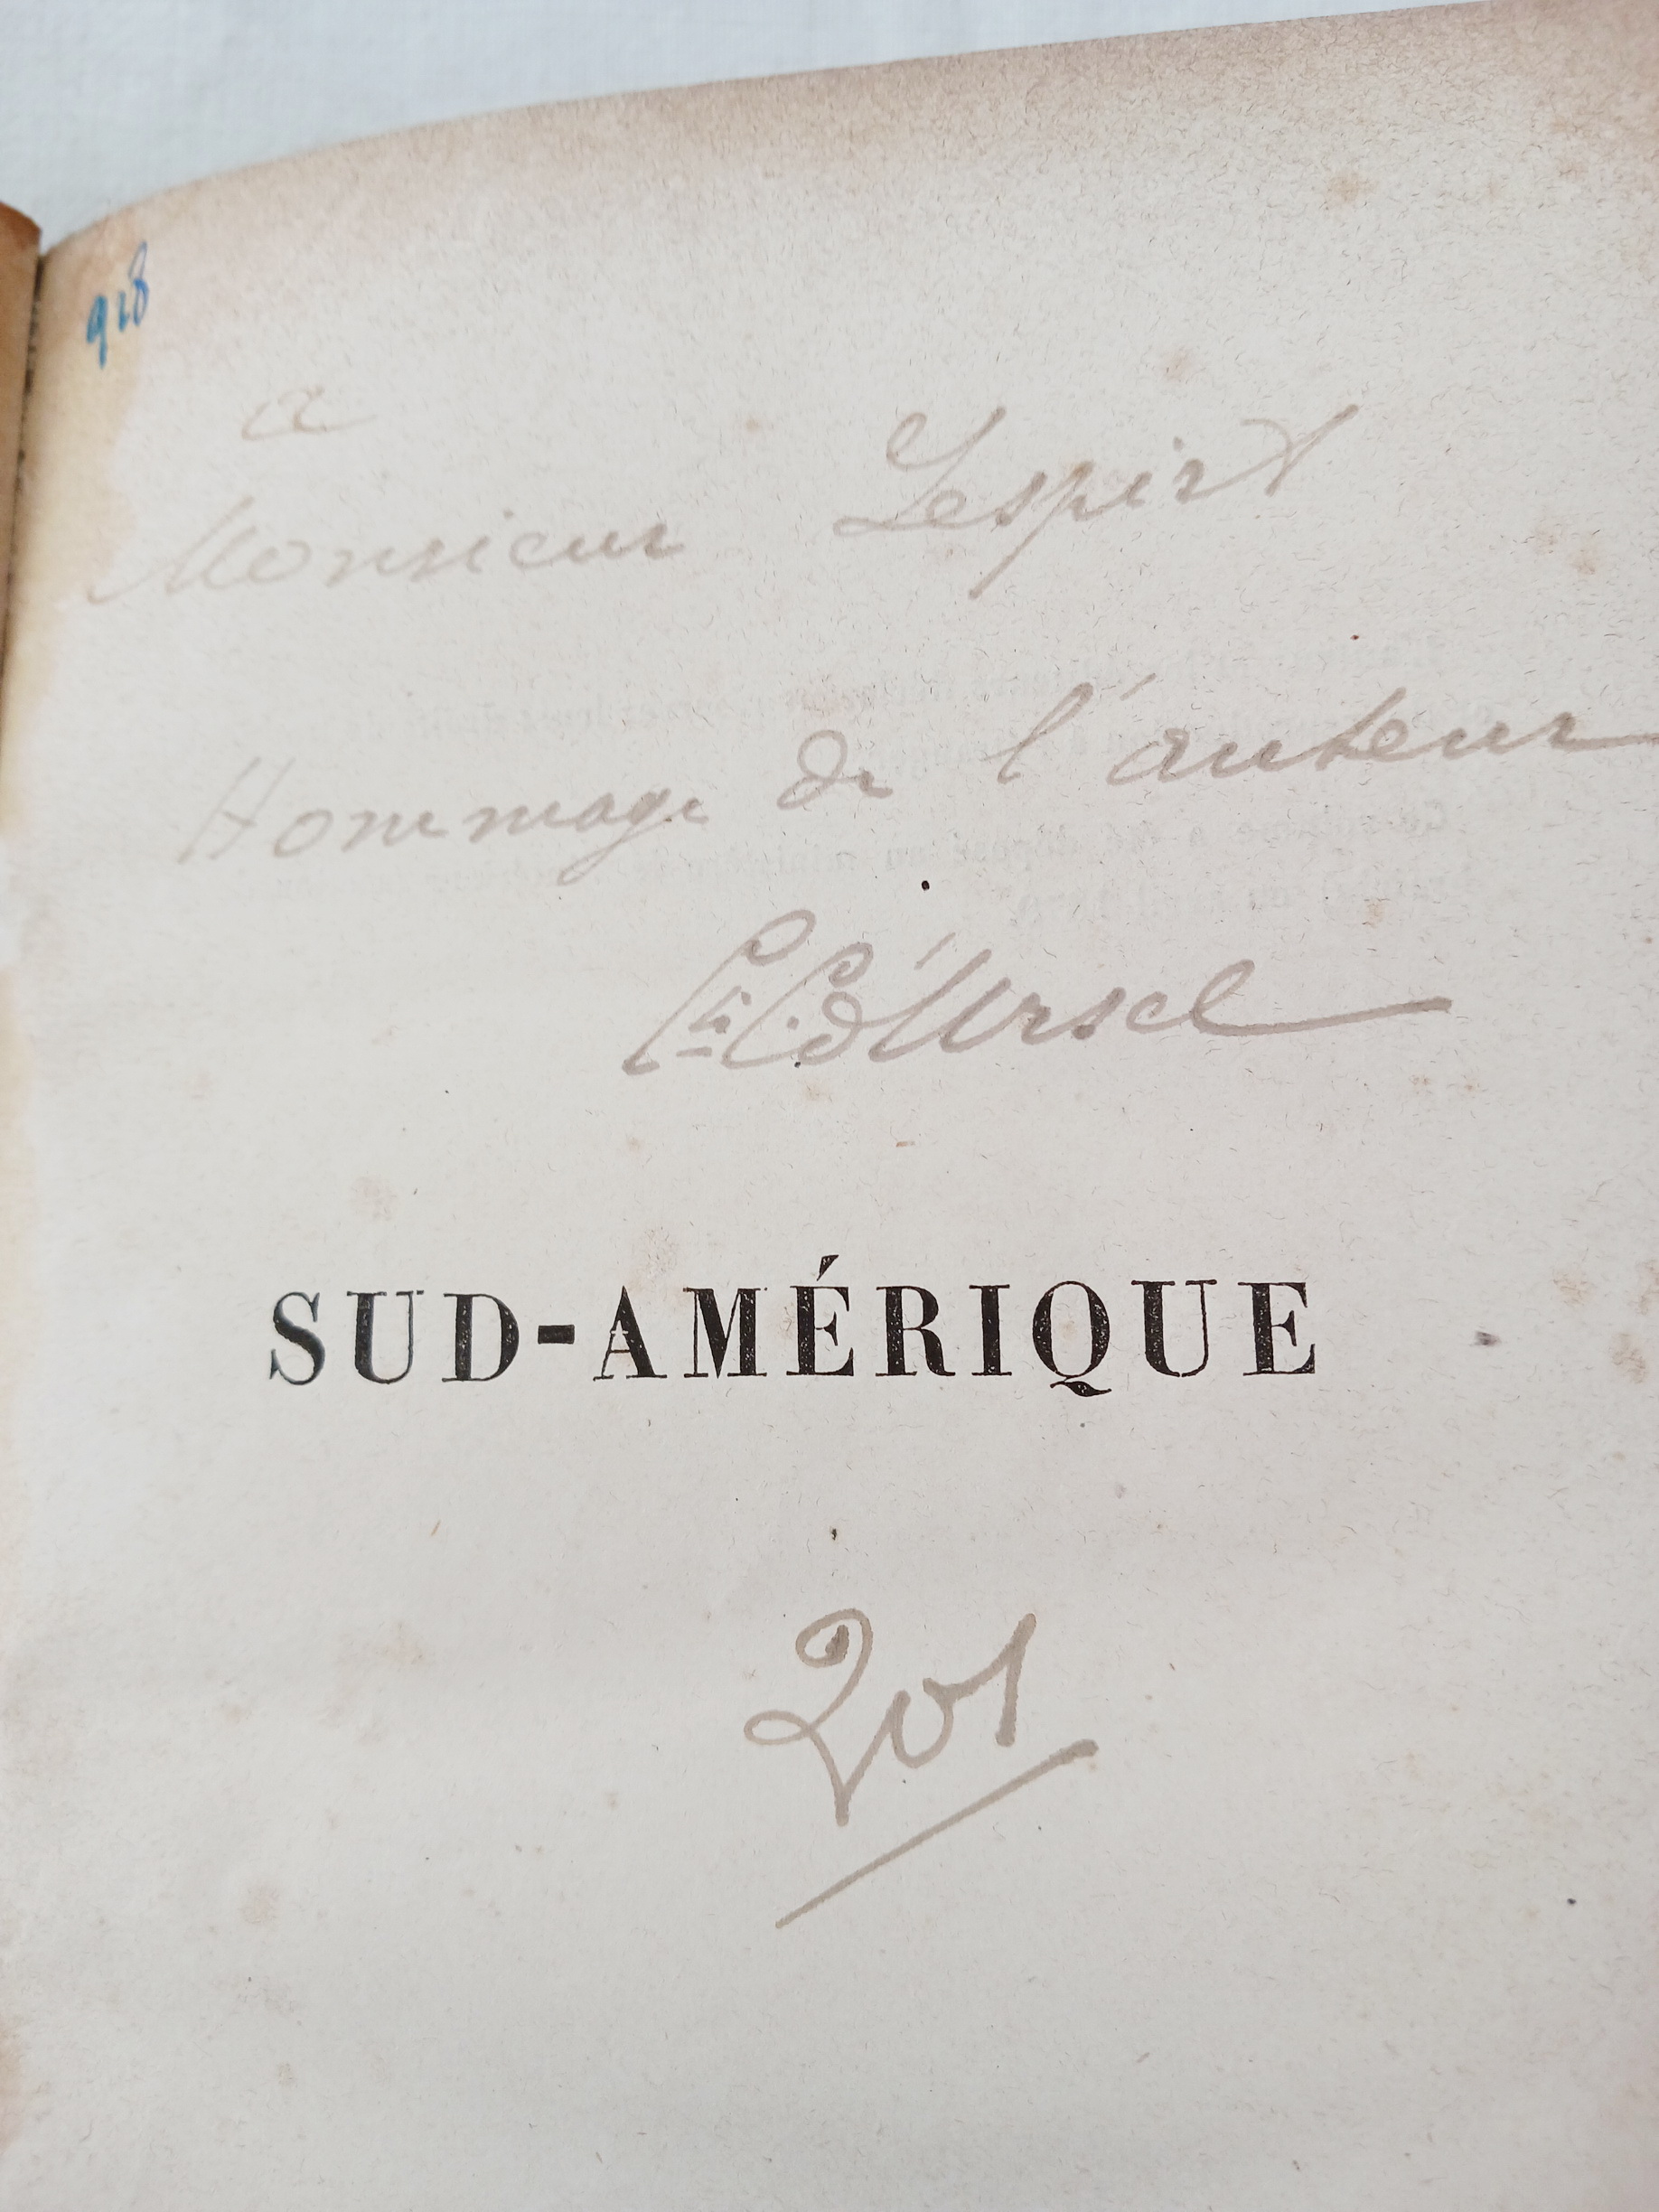 918
a
Monsieur Lespirt
Hommage de l'auteur
Cte C. d'Ursel
SUD-AMÉRIQUE
201